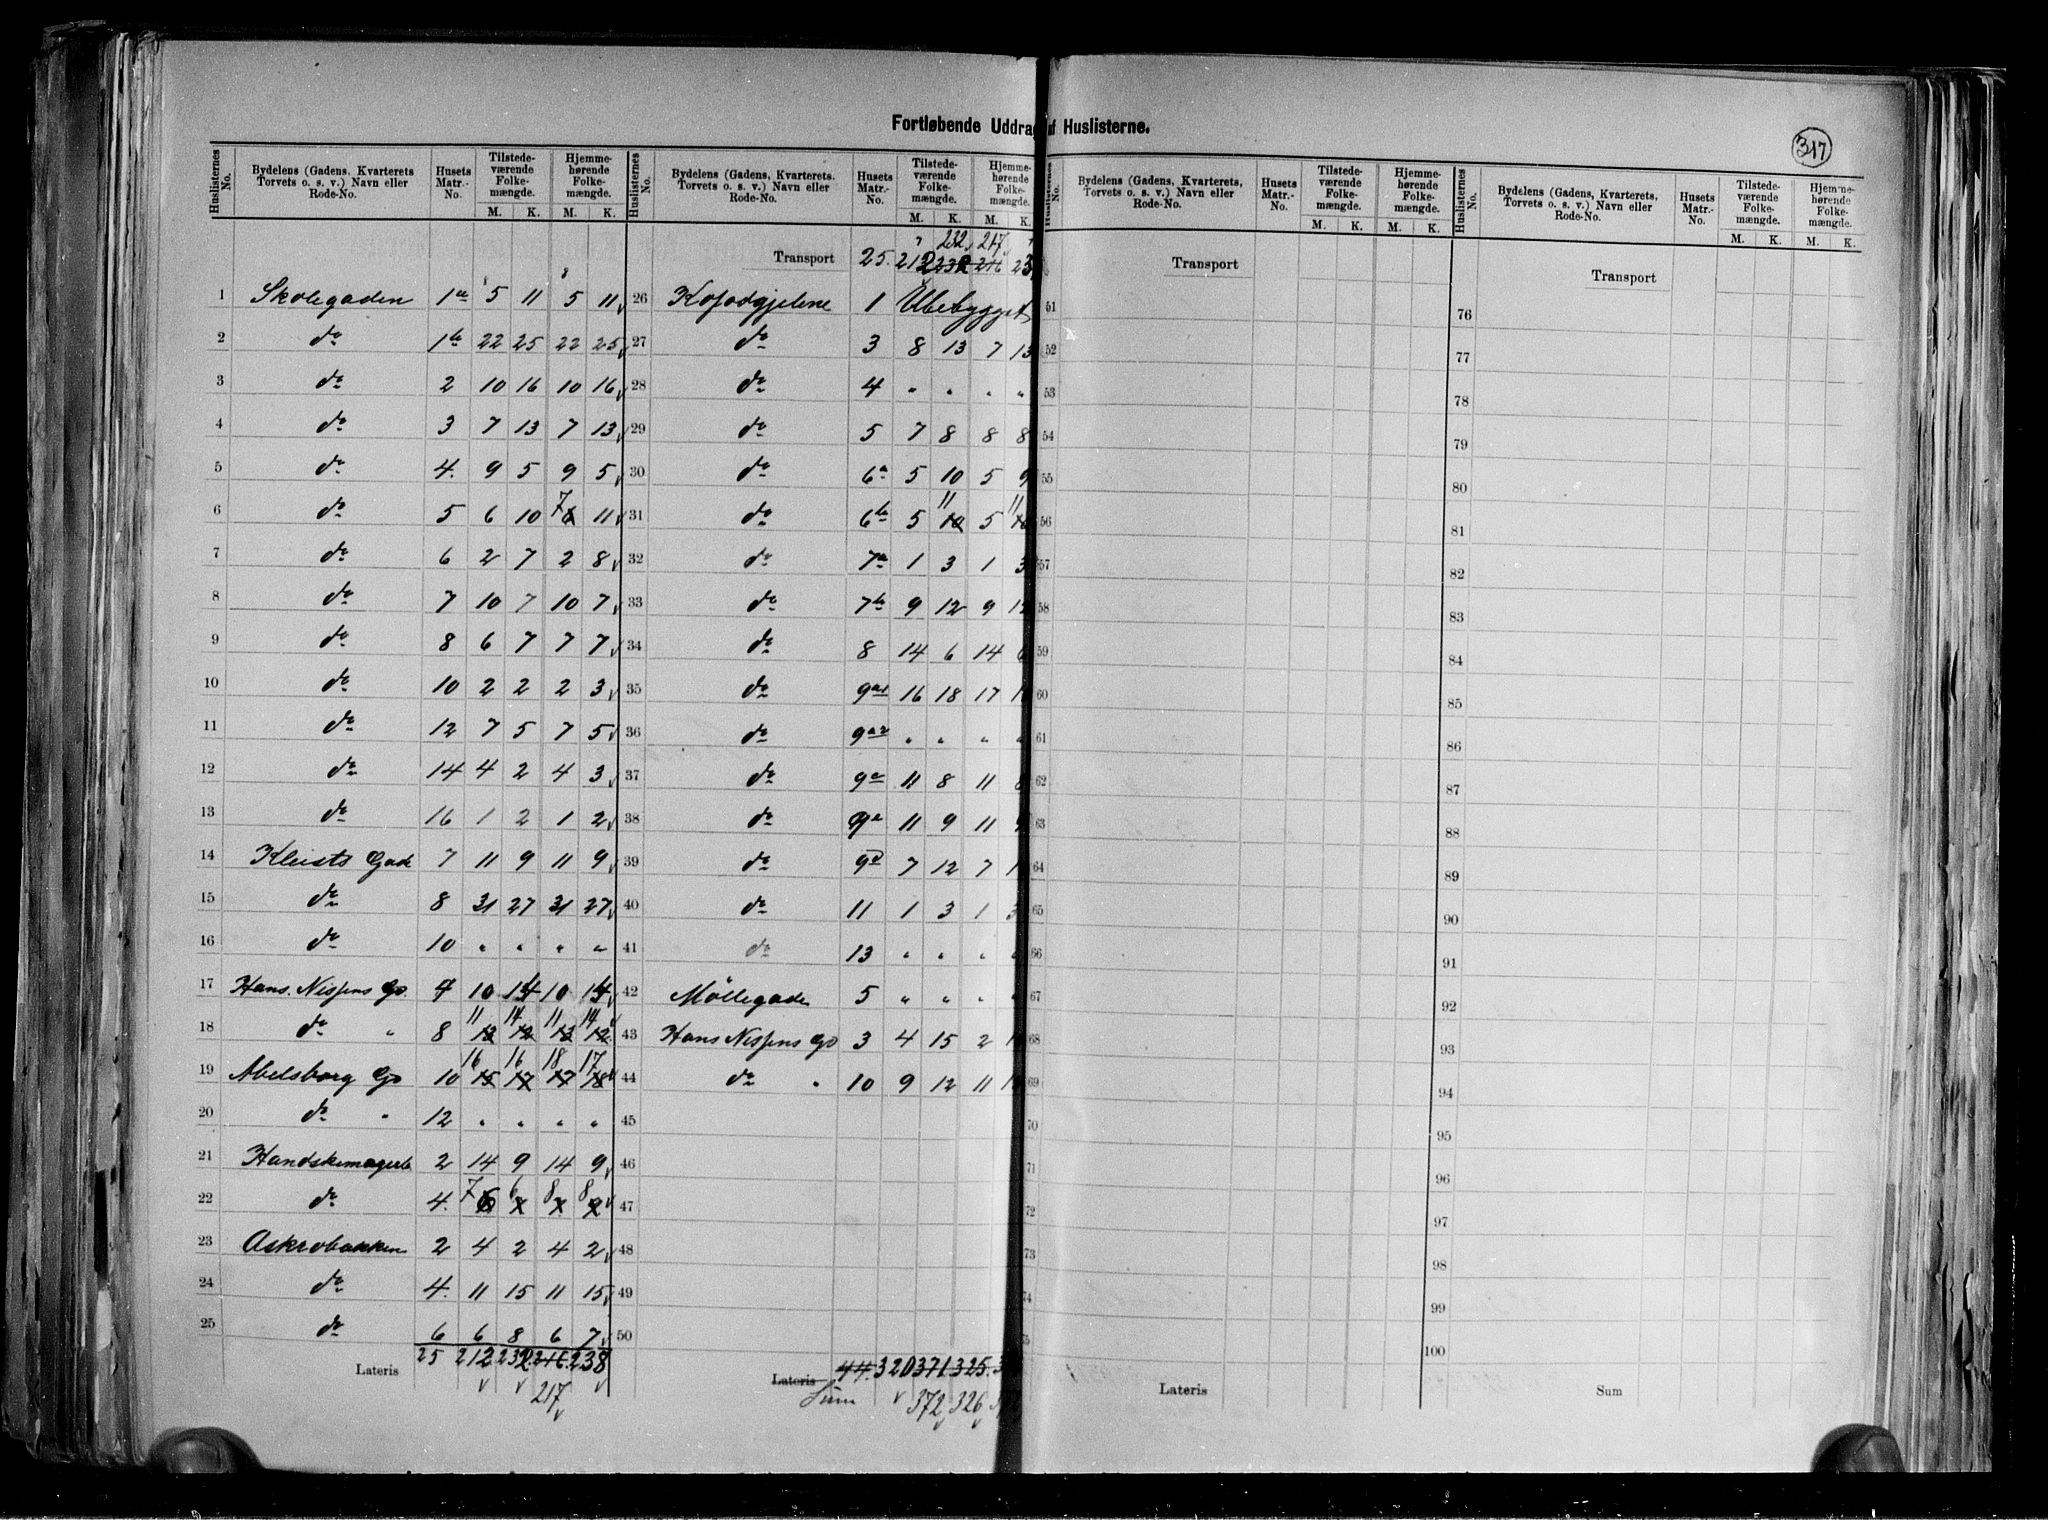 Fortløbende Uddrag af Huslisterne.
317
Huslisternes No. | Bydelens (Gadens, Kvarterets, Torvets o. s. v.) Navn eller Rode-No. | Husets Matr.-No. | Tilstedeværende Folkemængde. M. K. | Hjemmehørende Folkemængde. M. K.
1 Skolegaden 1a 5 11 5 11
2 do 1b 22 25 22 25
3 do 2 10 16 10 16
4 do 3 7 13 7 13
5 do 4. 9 5 9 5
6 do 5 6 10 7 11
7 do 6 2 7 2 8
8 do 7 10 7 10 7
9 do 8 6 7 7 7
10 do 10 2 2 2 3
11 do 12 7 5 7 5
12 do 14 4 2 4 3
13 do 16 1 2 1 2
14 Kleists Gade 7 11 9 11 9
15 do 8 31 27 31 27
16 do 10 " " " "
17 Hans Nissens G. 10 14 10 14
18 do " 8 11 14 11 14
13 12 13 12
19 Abelsborg G. 10 16 16 18 17
15 17 17 18
20 do " 12 " " " "
21 2 14 9 14 9
22 do 4. 7 6 8 8
23 2 4 2 4 2
24 do 4. 11 15 11 15
25 do 6 6 8 6 7
Lateris 25 212 232 216 238
217
Huslisternes No. | Bydelens (Gadens, Kvarterets, Torvets o. s. v.) Navn eller Rode-No. | Husets Matr.-No. | Tilstedeværende Folkemængde. M. K. | Hjemmehørende Folkemængde. M. K.
232 217
Transport 25. 212 216 23
26 1 Ubebygget
27 do 3 8 13 7 13
28 do 4 " " " "
29 do 5 7 8 8 8
30 do 6a 5 10 5 9
31 do 6b 5 11 5 11
32 do 7a 1 3 1 3
33 do 7b 9 12 9 12
34 do 8 14 6 14 6
35 do 9a1 16 18 17
36 do 9a2 " " " "
37 do 11 8 11 8
38 do 11 9 11 9
39 do 9d 7 12 7
40 do 11 1 3 1 3
41 do 13 " " " "
42 Möllegade 5 " " " "
43 Hans Nissens G. 3 4 15 2
44 do " 10 9 12 11
45
46
47
48
49
50
Lateris 44. 320 371 325.
Sum 372 326
Huslisternes No. | Bydelens (Gadens, Kvarterets, Torvets o. s. v.) Navn eller Rode-No. | Husets Matr.-No. | Tilstedeværende Folkemængde. M. K. | Hjemmehørende Folkemængde. M. K.
Transport
51
52
53
54
55
56
57
58
59
60
61
62
63
64
65
66
67
68
69
70
71
72
73
74
75
Lateris
Huslisternes No. | Bydelens (Gadens, Kvarterets, Torvets o. s. v.) Navn eller Rode-No. | Husets Matr.-No. | Tilstedeværende Folkemængde. M. K. | Hjemmehørende Folkemængde. M. K.
Transport
76
77
78
79
80
81
82
83
84
85
86
87
88
89
90
91
92
93
94
95
96
97
98
99
100
Sum